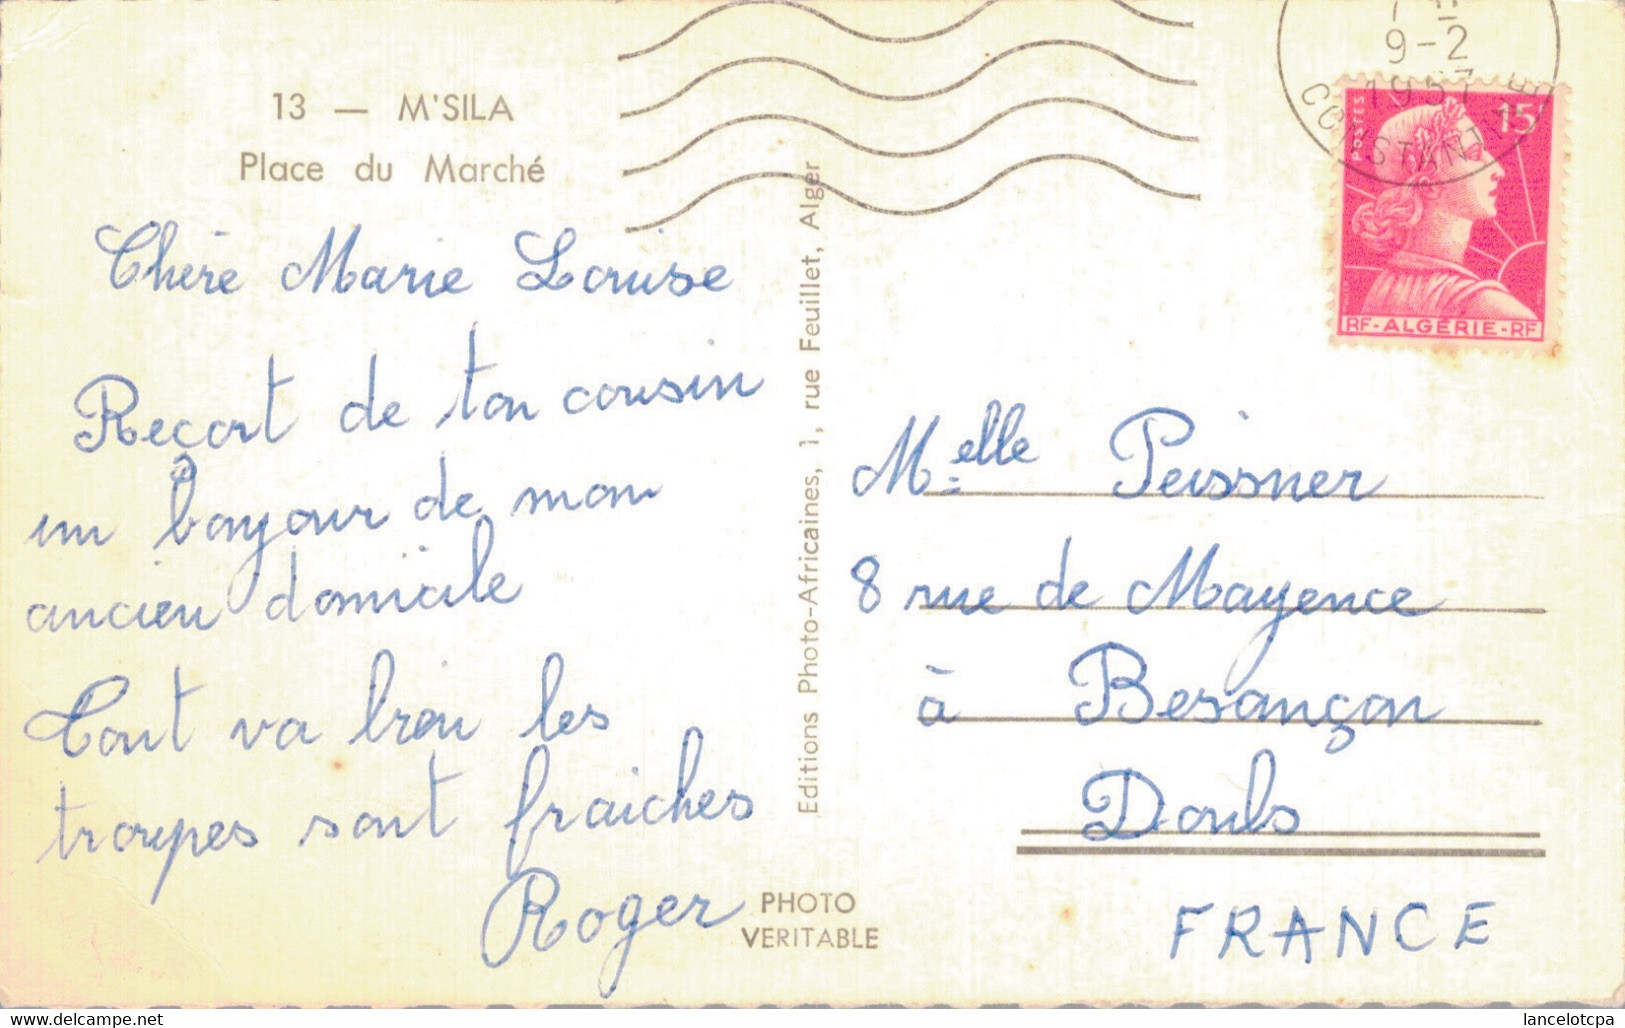 13 — M'SILA
Place du Marché
Chère Marie Louise
Reçort de ton cousin
un bonjour de mon
ancien domicile
Tout va bien les
troupes sont fraiches
Roger
PHOTO
VERITABLE
Editions Photo-Africaines, 1, rue Feuillet, Alger
9-2
1957
CONSTANTINE
POSTES
15F
RF-ALGÉRIE-RF
Melle Peissner
8 rue de Mayence
à Besançon
Doubs
FRANCE
www.delcampe.net
lancelotcpa